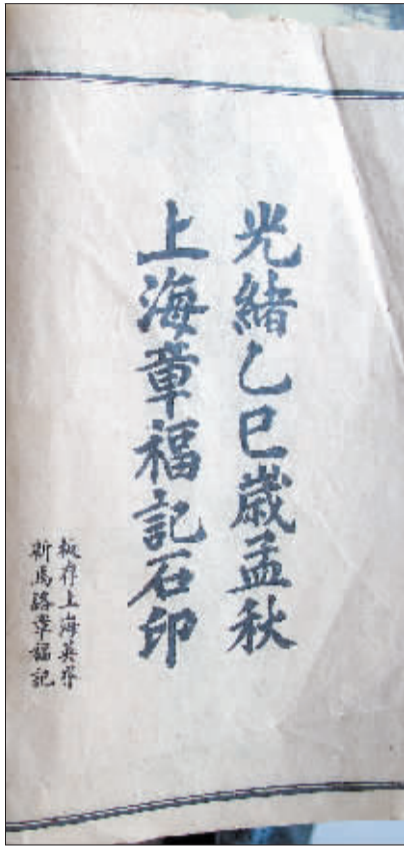 光緒乙巳歲孟秋
上海章福記石印
板存上海英界
新馬路章福記